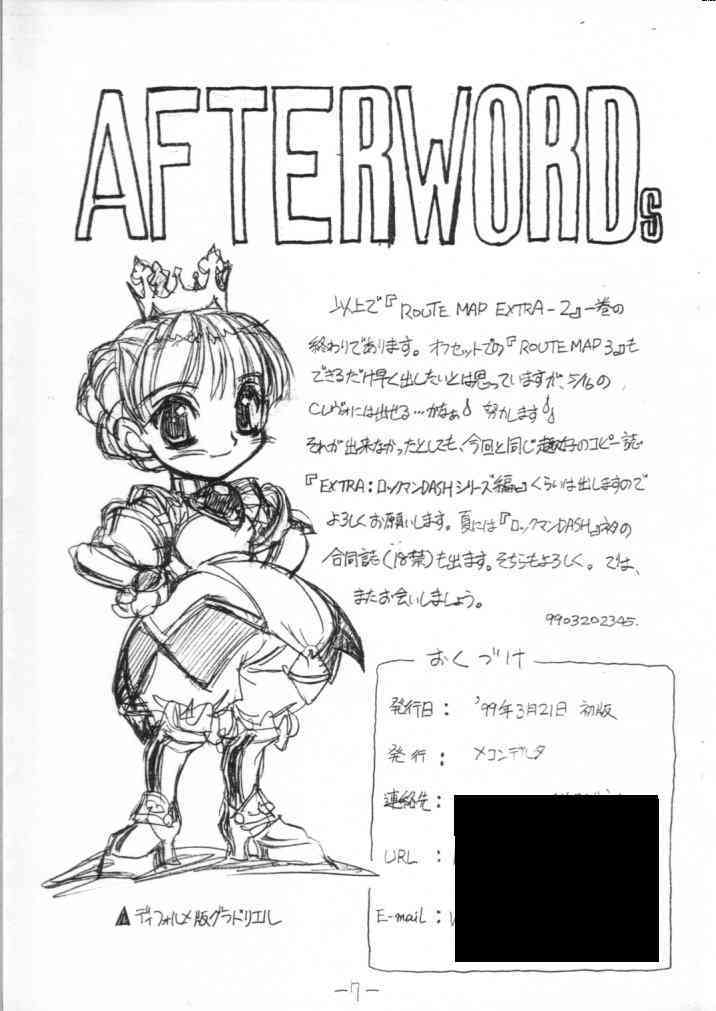 AFTERWORDs
以上で『ROUTE MAP EXTRA-2』一巻の
終わりであります。オフセットでの『ROUTE MAP 3』も
できるだけ早く出したいとは思っていますが、5/16の
Cレヴォには出せる…かなぁ 努力します
それが出来なかったとしても、今回と同じ趣好のコピー誌
『EXTRA:ロックマンDASHシリーズ編』くらいは出しますので
よろしくお願いします。夏には『ロックマンDASH』ネタの
合同誌(18禁)も出ます。そちらもよろしく。では、
またお会いしましょう。
9903202345.
おくづけ
発行日: '99年3月21日 初版
発行: メコンデルタ
連絡先:
URL :
E-mail :
▲ディフォルメ版グラドリエル
-7-